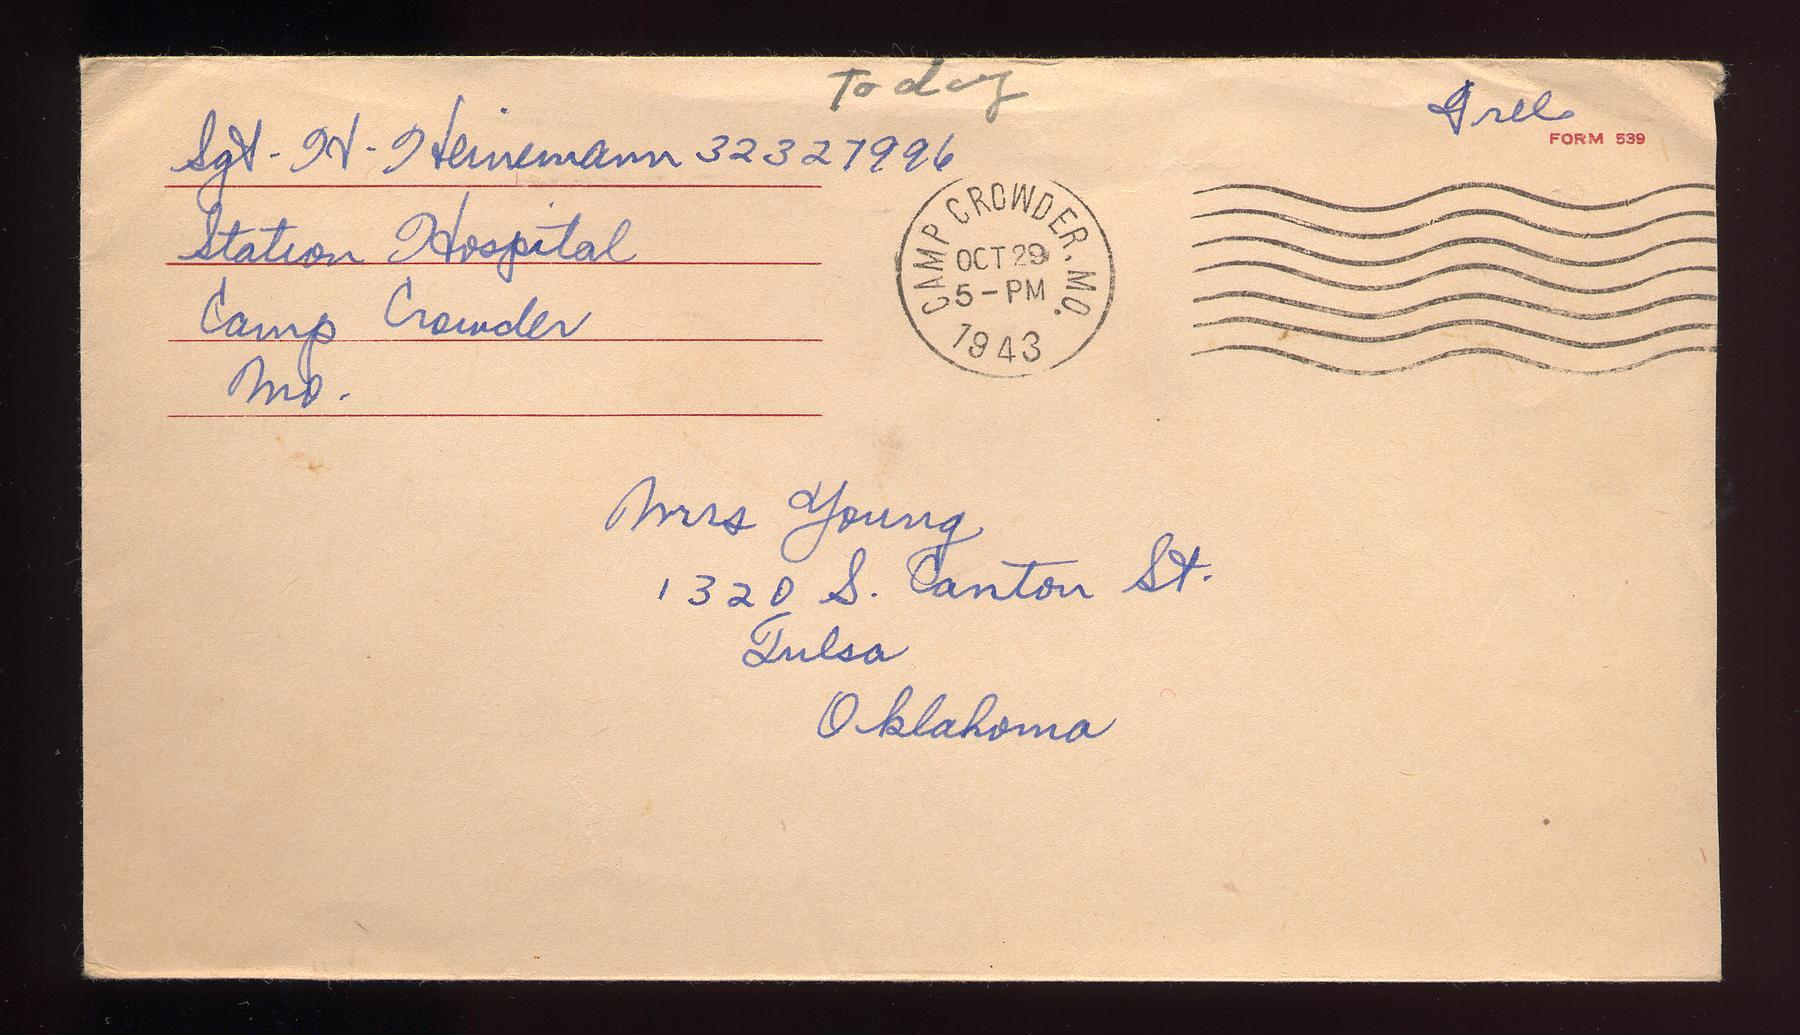 Today
Free
FORM 539
Sgt. H. Heinemann 32327996
Station Hospital
Camp Crowder
Mo.
CAMP CROWDER, MO.
OCT 29
5-PM
1943
Mrs Young
1320 S. Canton St.
Tulsa
Oklahoma